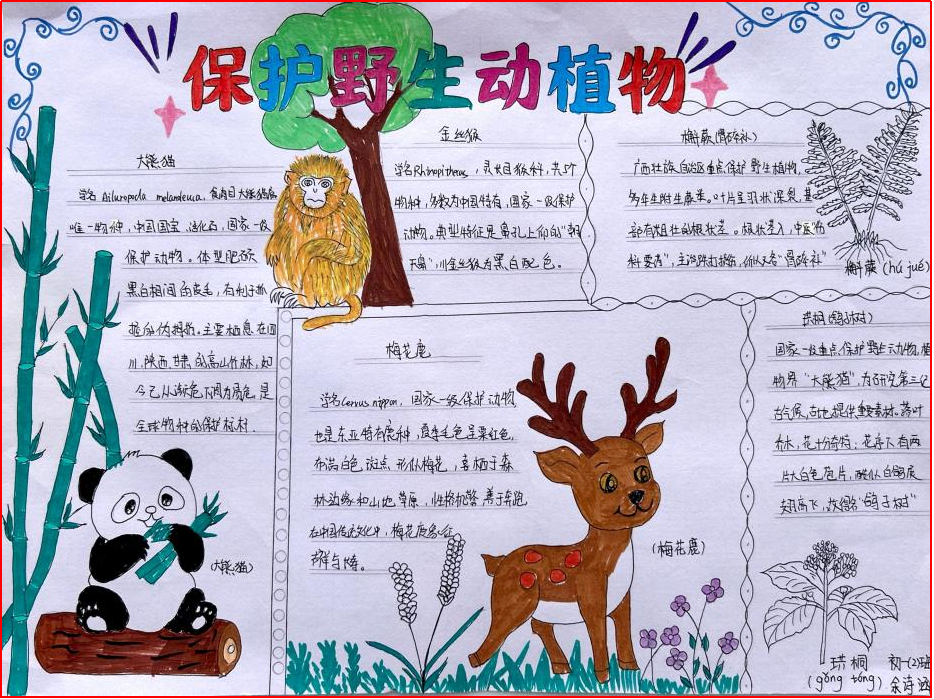 保护野生动植物
大熊猫
学名 Ailuropoda melanoleuca, 食肉目大熊猫属
唯一物种, 中国国宝 活化石, 国家一级
保护动物。体型肥硕
黑白相间的皮毛, 有利于
主要栖息在四
川、陕西、甘肃的高山竹林, 如
今已从濒危下调为易危, 是
全球物种的保护标杆.
(大熊猫)
金丝猴
学名Rhinopithecus, 灵长目猴科, 共5个
物种, 多数为中国特有, 国家一级保护
动物。典型特征是鼻孔上仰的"朝
天鼻", 川金丝猴为黑白配色。
槲蕨(骨碎补)
广西壮族自治区重点保护野生植物,
多年生附生蕨类。叶片呈羽状深裂, 基
部有粗壮的根状茎。根茎入中医药
"骨碎补"
槲蕨(hú jué)
梅花鹿
学名Cervus nippon, 国家一级保护动物
也是东亚特有鹿种, 夏季毛色呈栗红色,
布满白色斑点, 形似梅花, 喜栖于森
林边缘和山地草原, 性格机警 善于奔跑
在中国传统文化中, 梅花鹿象征
祥与
(梅花鹿)
珙桐(鸽子树)
国家一级重点保护野生动物, 植
物界"大熊猫", 为研究第三纪
古气候、古地提供重要素材。落叶
乔木, 花十分奇特: 花序下有两
片大白色苞片, 酷似白鸽展
翅高飞, 故得名"鸽子树"
珙桐
(gǒng tóng)
初一(2)班
余诗涵